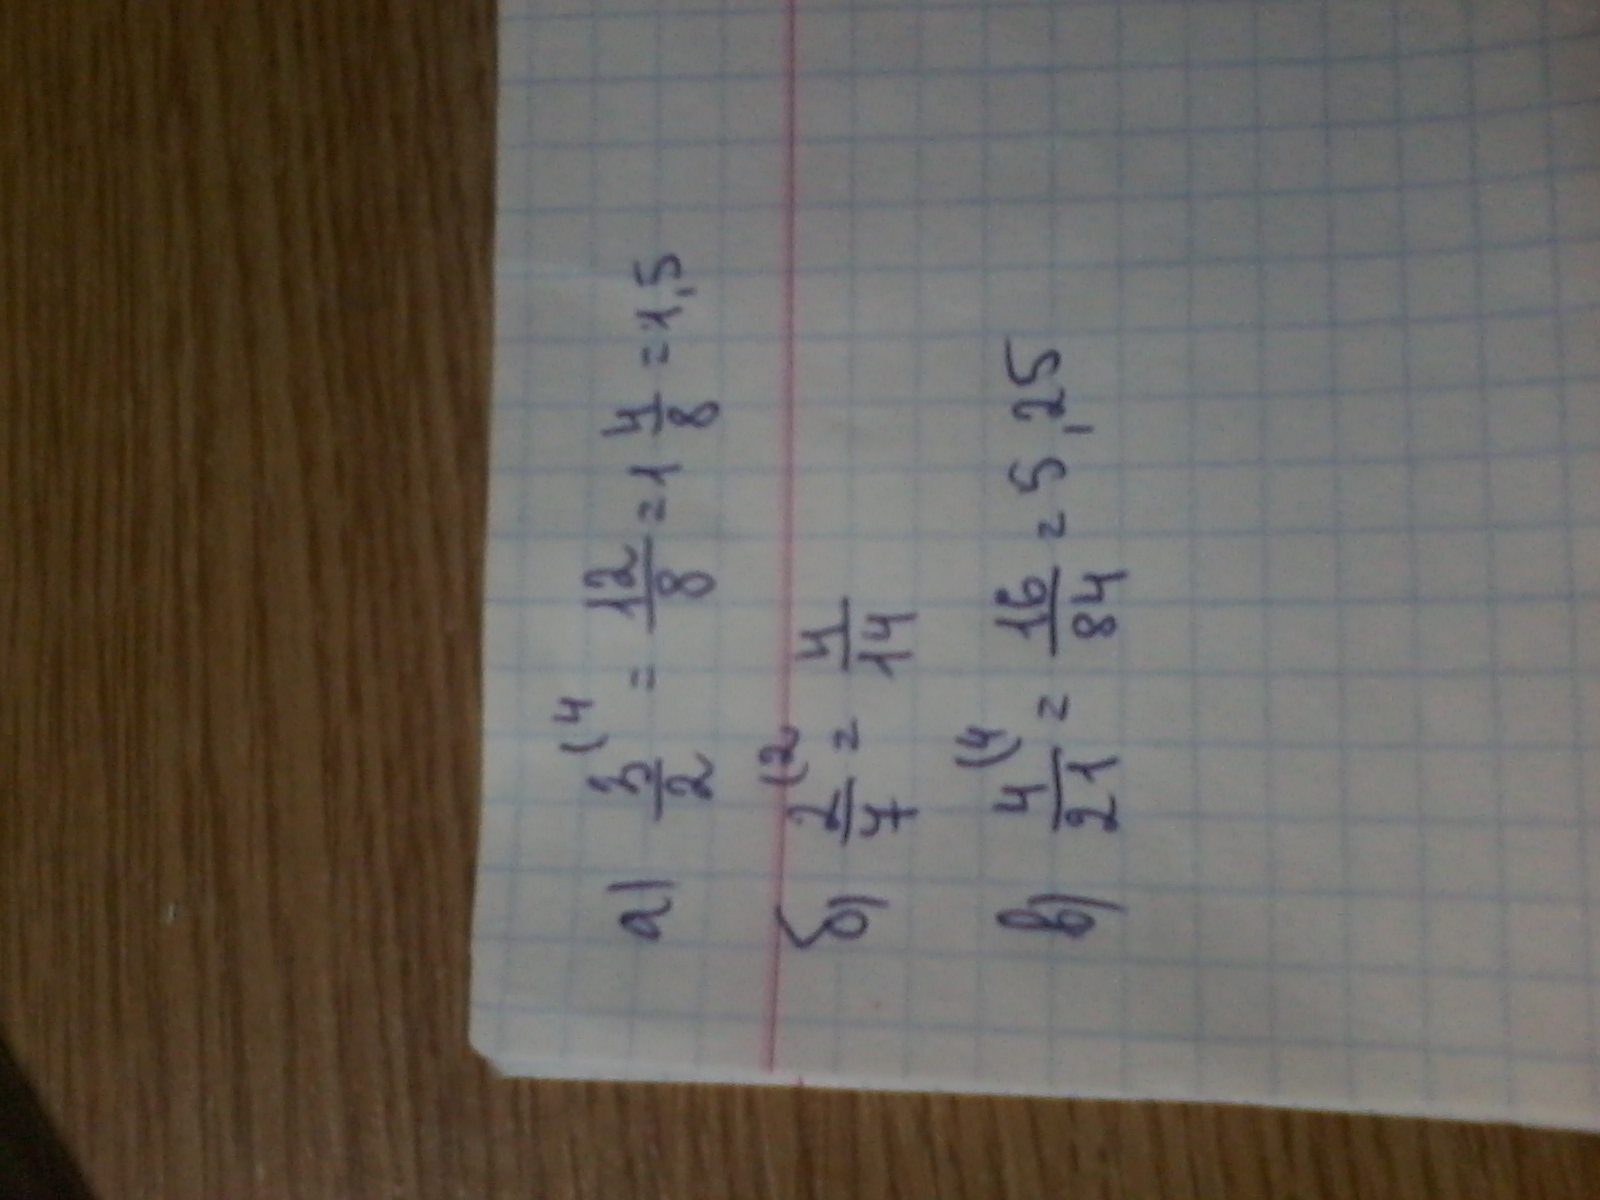 а) 3/2 (4 = 12/8 = 1 4/8 = 1,5
б) 2/7 (2 = 4/14
в) 4/21 (4 = 16/84 = 5,25